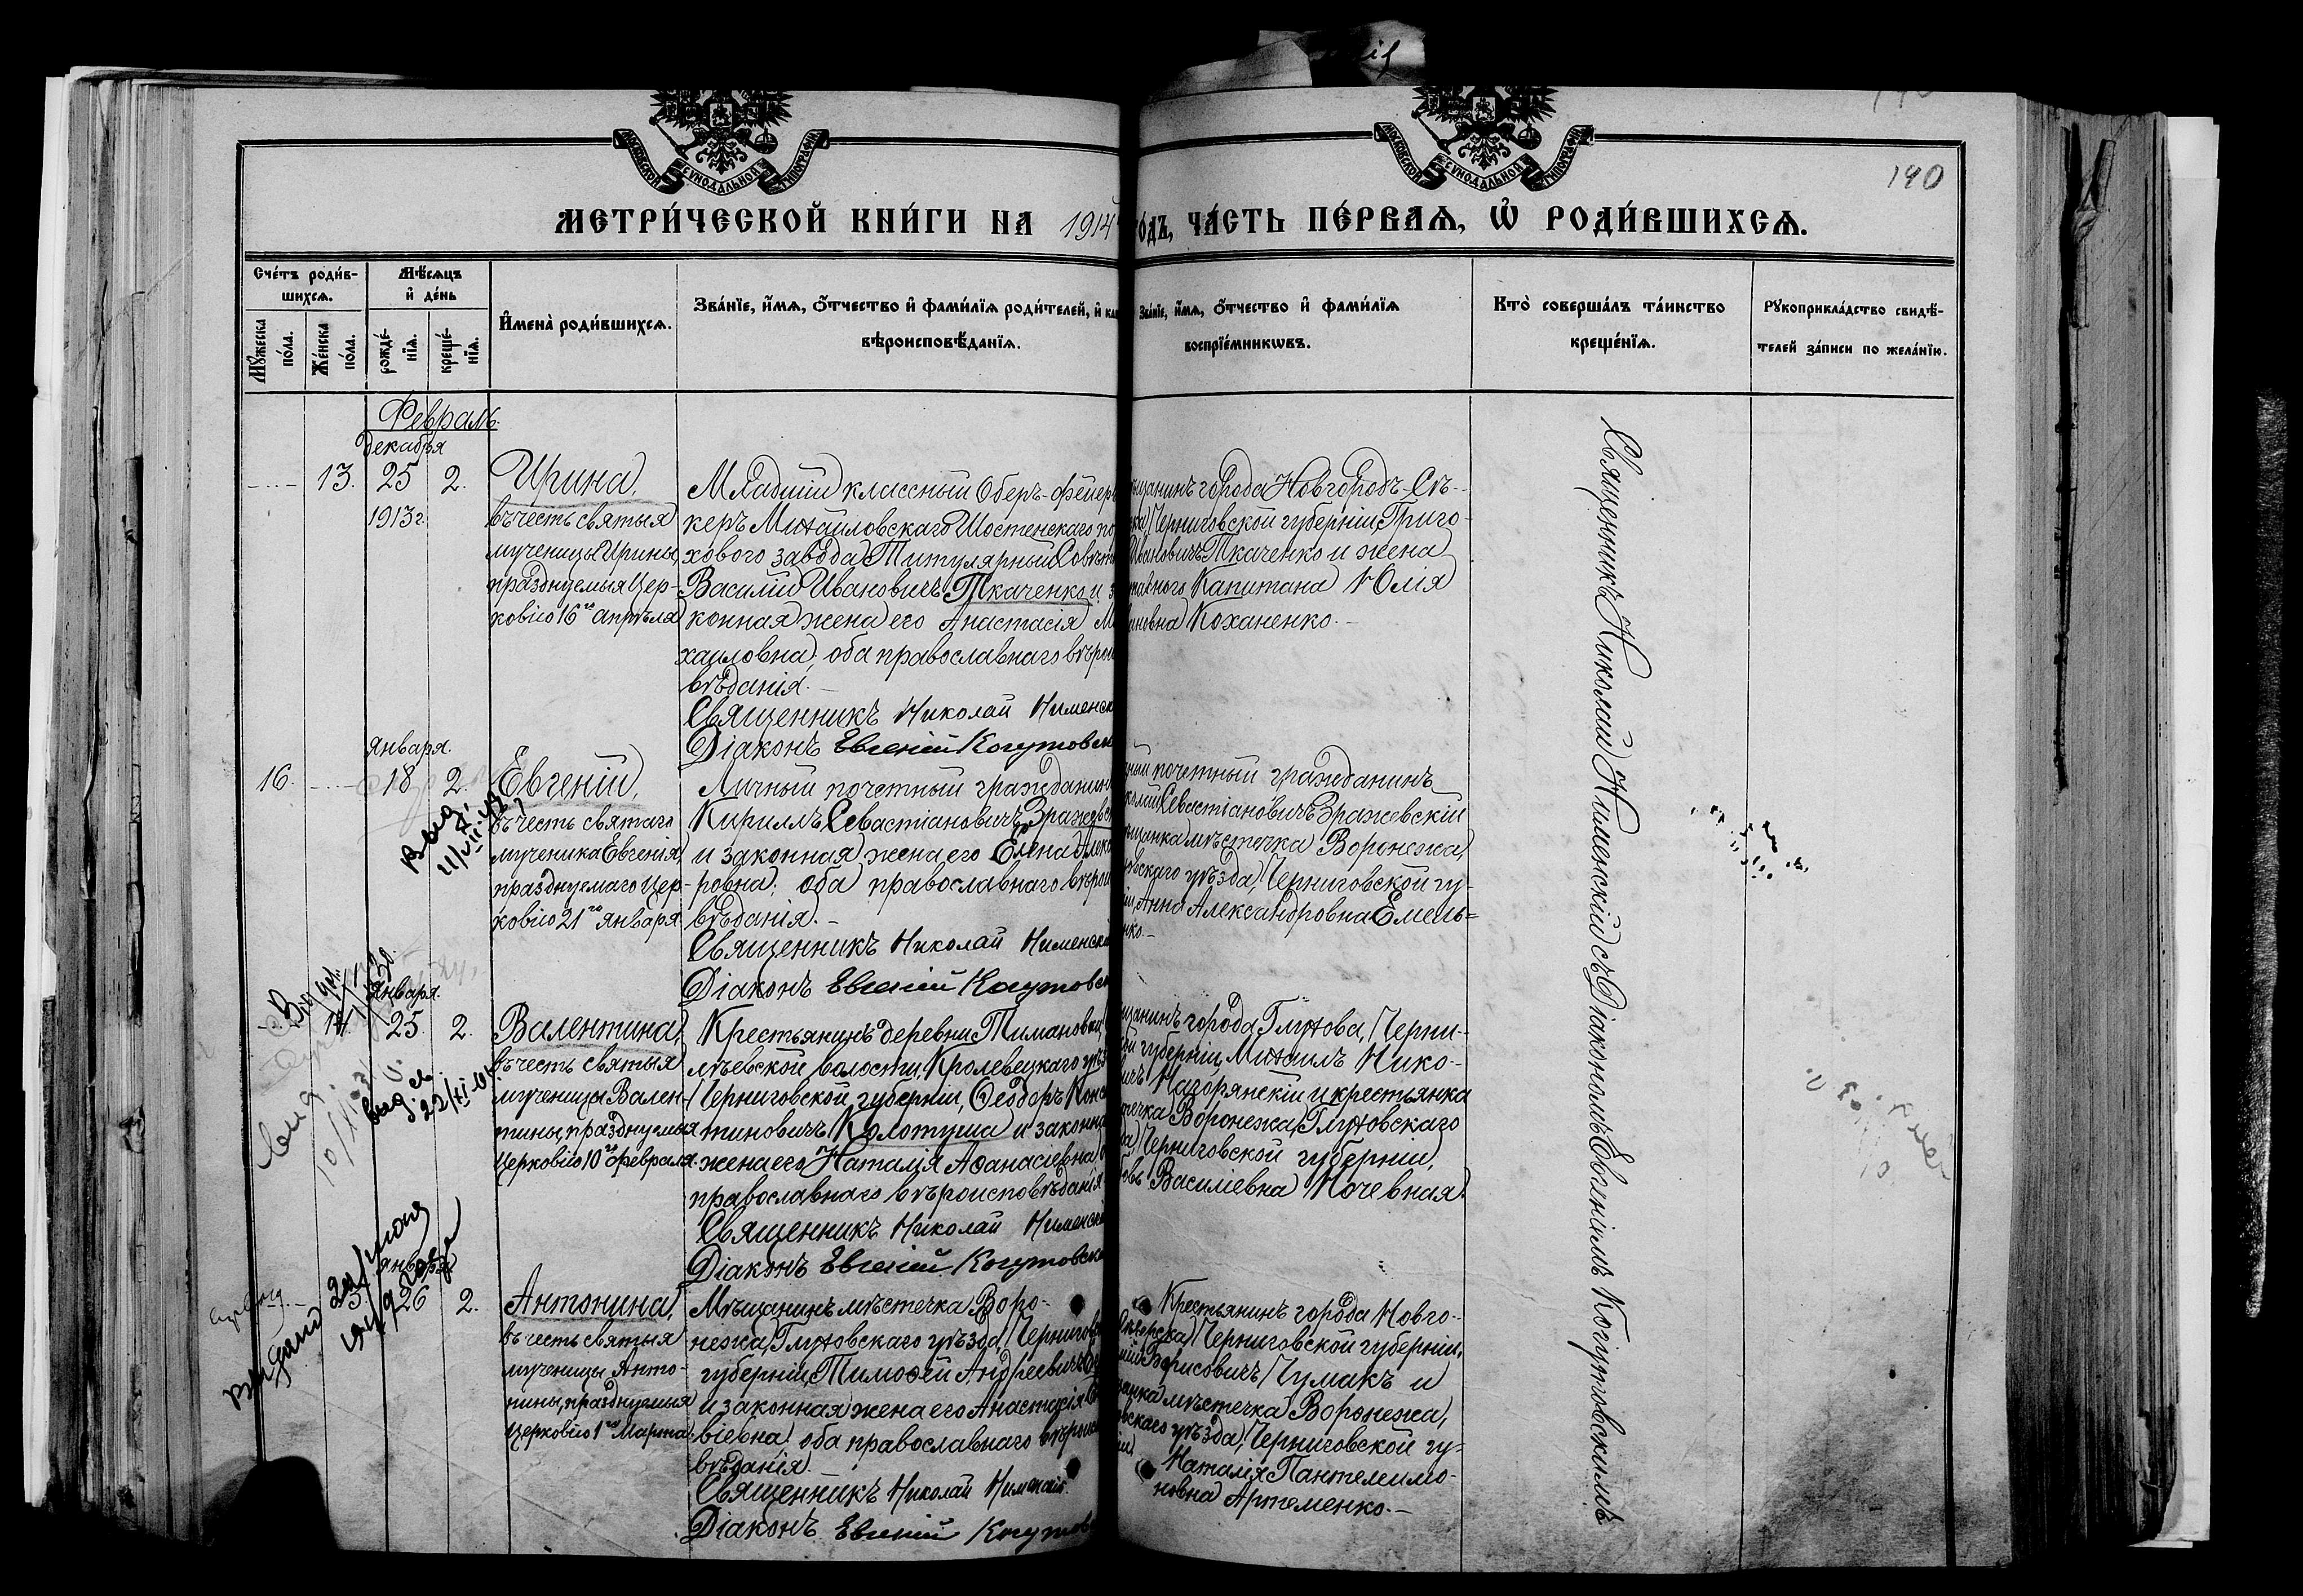 190
МОСКОВСКОЙ СѴНОДАЛЬНОЙ ТИПОГРАФІИ
МОСКОВСКОЙ СѴНОДАЛЬНОЙ ТИПОГРАФІИ
МЕТРИ́ЧЕСКОЙ КНИ́ГИ НА 1914 ГО́ДЪ, ЧА́СТЬ ПЕ́РВАѦ, Ѡ РОДИ́ВШИХСѦ.
Сче́тъ роди́в-
шихсѧ.
Мꙋ́жеска по́ла.
Же́нска по́ла.
Мѣ́сѧцъ и де́нь
рожде́-нїѧ.
креще́-нїѧ.
Имена̀ роди́вшихсѧ.
Зва́нїе, и́мѧ, о́тчество и фами́лїѧ роди́телей, и
вѣроисповѣ́данїѧ.
Зва́нїе, и́мѧ, о́тчество и фами́лїѧ
воспрїе́мникѡвъ.
Кто̀ соверша́лъ та́инство
креще́нїѧ.
Рꙋкоприкла́дство свидѣ́-
телей за́писи по жела́нїю.
Февраль.
Декабря
13. 25 2.
1913 г.
Ирина,
въ честь святыя
мученицы Ирины,
празднуемыя Цер-
ковію 16го Апрѣля
Младшій классный Оберъ-фейер
керъ Михайловскаго Шостенскаго по
хового завода Титулярный Совѣтн
Василій Ивановичъ Ткаченко и з
конная жена его Анастасія М
хаиловна, оба православнаго вѣрои
вѣданія.
Священникъ Николай Нименск
Діаконъ Евгеній Когутовск
щанинъ города Новгородъ-Сѣ-
Черниговской губерніи, Григо-
Ивановичъ Ткаченко и жена
тавного Капитана Юлія
ановна Коханенко.
Января.
16. 18 2.
Евгеній,
въ честь святаго
мученика Евгенія,
празднуемаго Цер-
ковію 21го Января.
Личный почетный гражданинъ
Кириллъ Севастіановичъ Зражевс
и законная жена его Елена Алекс
ровна; оба православнаго вѣрои
вѣданія.
Священникъ Николай Нименскі
Діаконъ Евгеній Когутовск
ный почетный гражданинъ
Севастіановичъ Зражевскій
щанка мѣстечка Воронежа,
овскаго уѣзда, Черниговской гу-
Анна Александровна Емель-
нко.
Января.
14. 25 2.
Валентина,
въ честь святыя
мученицы Вален-
тины, празднуемыя
Церковію 10го Февраля.
Крестьянинъ деревни Тимановки,
лѣевской волости, Кролевецкаго уѣз
Черниговской губерніи, Ѳеодоръ Конс
тиновичъ Колотуша и законна
жена его Наталія Аѳанасіевна
православнаго вѣроисповѣданія
Священникъ Николай Нименскі
Діаконъ Евгеній Когутовск
щанинъ города Глухова, Черни-
ой губерніи, Михаилъ Нико-
ичъ Нагорянскій и крестьянка
течка Воронежа, Глуховскаго
Черниговской губерніи,
овь Василіевна Кочевная.
Января
26 2.
Антонина,
въ честь святыя
мученицы Анто-
нины, празднуемыя
Церковію 1го Марта.
Мѣщанинъ мѣстечка Воро-
нежа, Глуховскаго уѣзда, Чернигов
губерніи, Тимоѳей Андреевичъ
и законная жена его Анастасія
віевна, оба православнаго вѣроис
вѣданія.
Священникъ Николай Нименскій
Діаконъ Евгеній Когутов
Крестьянинъ города Новго-
Черниговской губерніи,
Борисовичъ Чумакъ и
щанка мѣстечка Воронежа,
овскаго уѣзда, Черниговской гу-
Наталія Пантелеимо-
новна Артеменко.
Священникъ Николай Нименскій съ Діакономъ Евгеніемъ Когутовскимъ